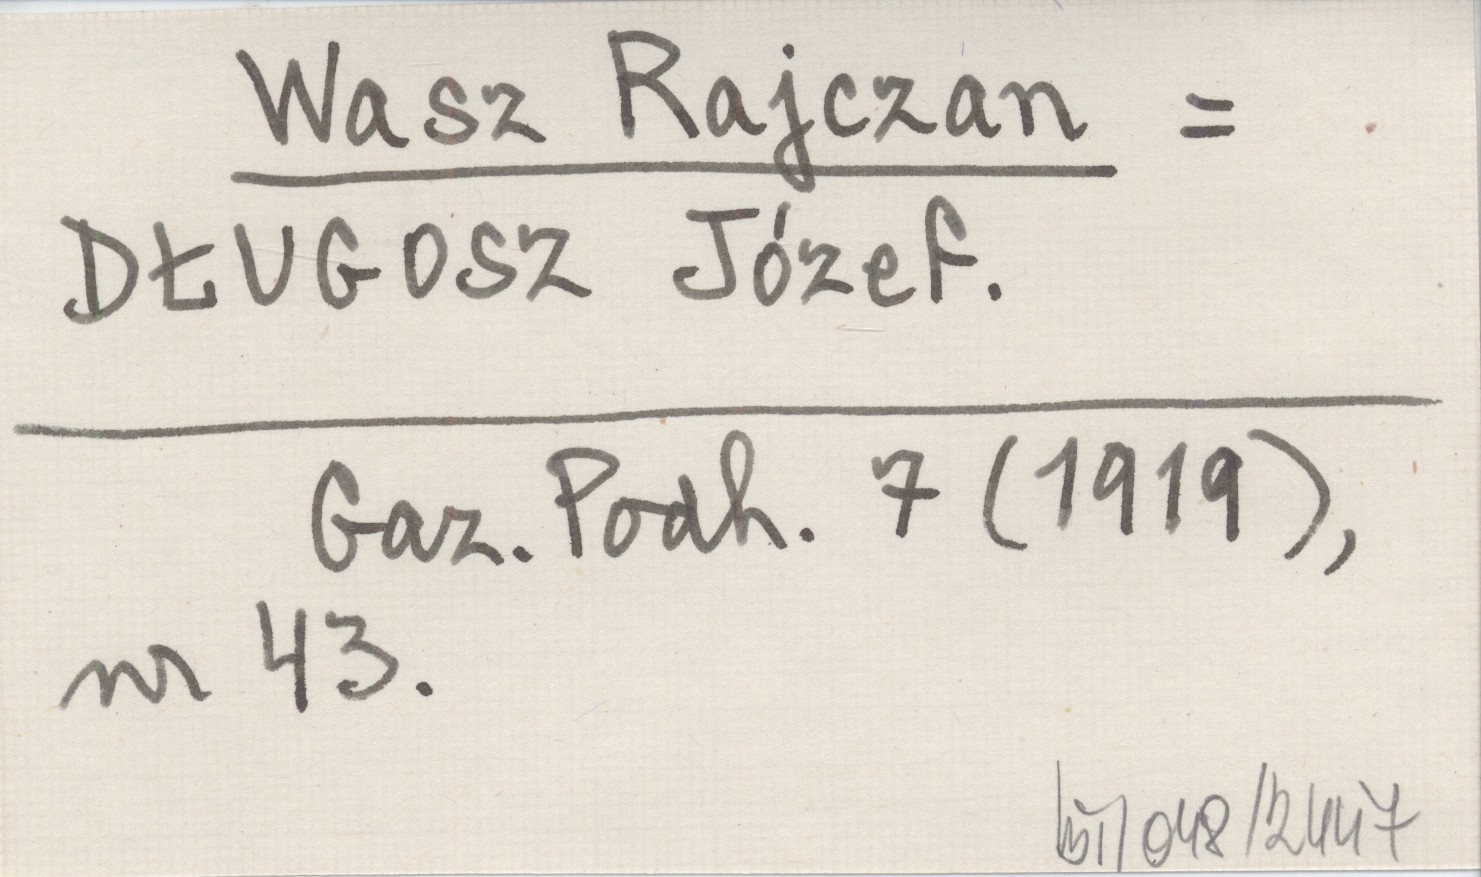 Wasz Rajczan =
DŁUGOSZ Józef.
Gaz. Podh. 7 (1919),
nr 43.
/048/2447